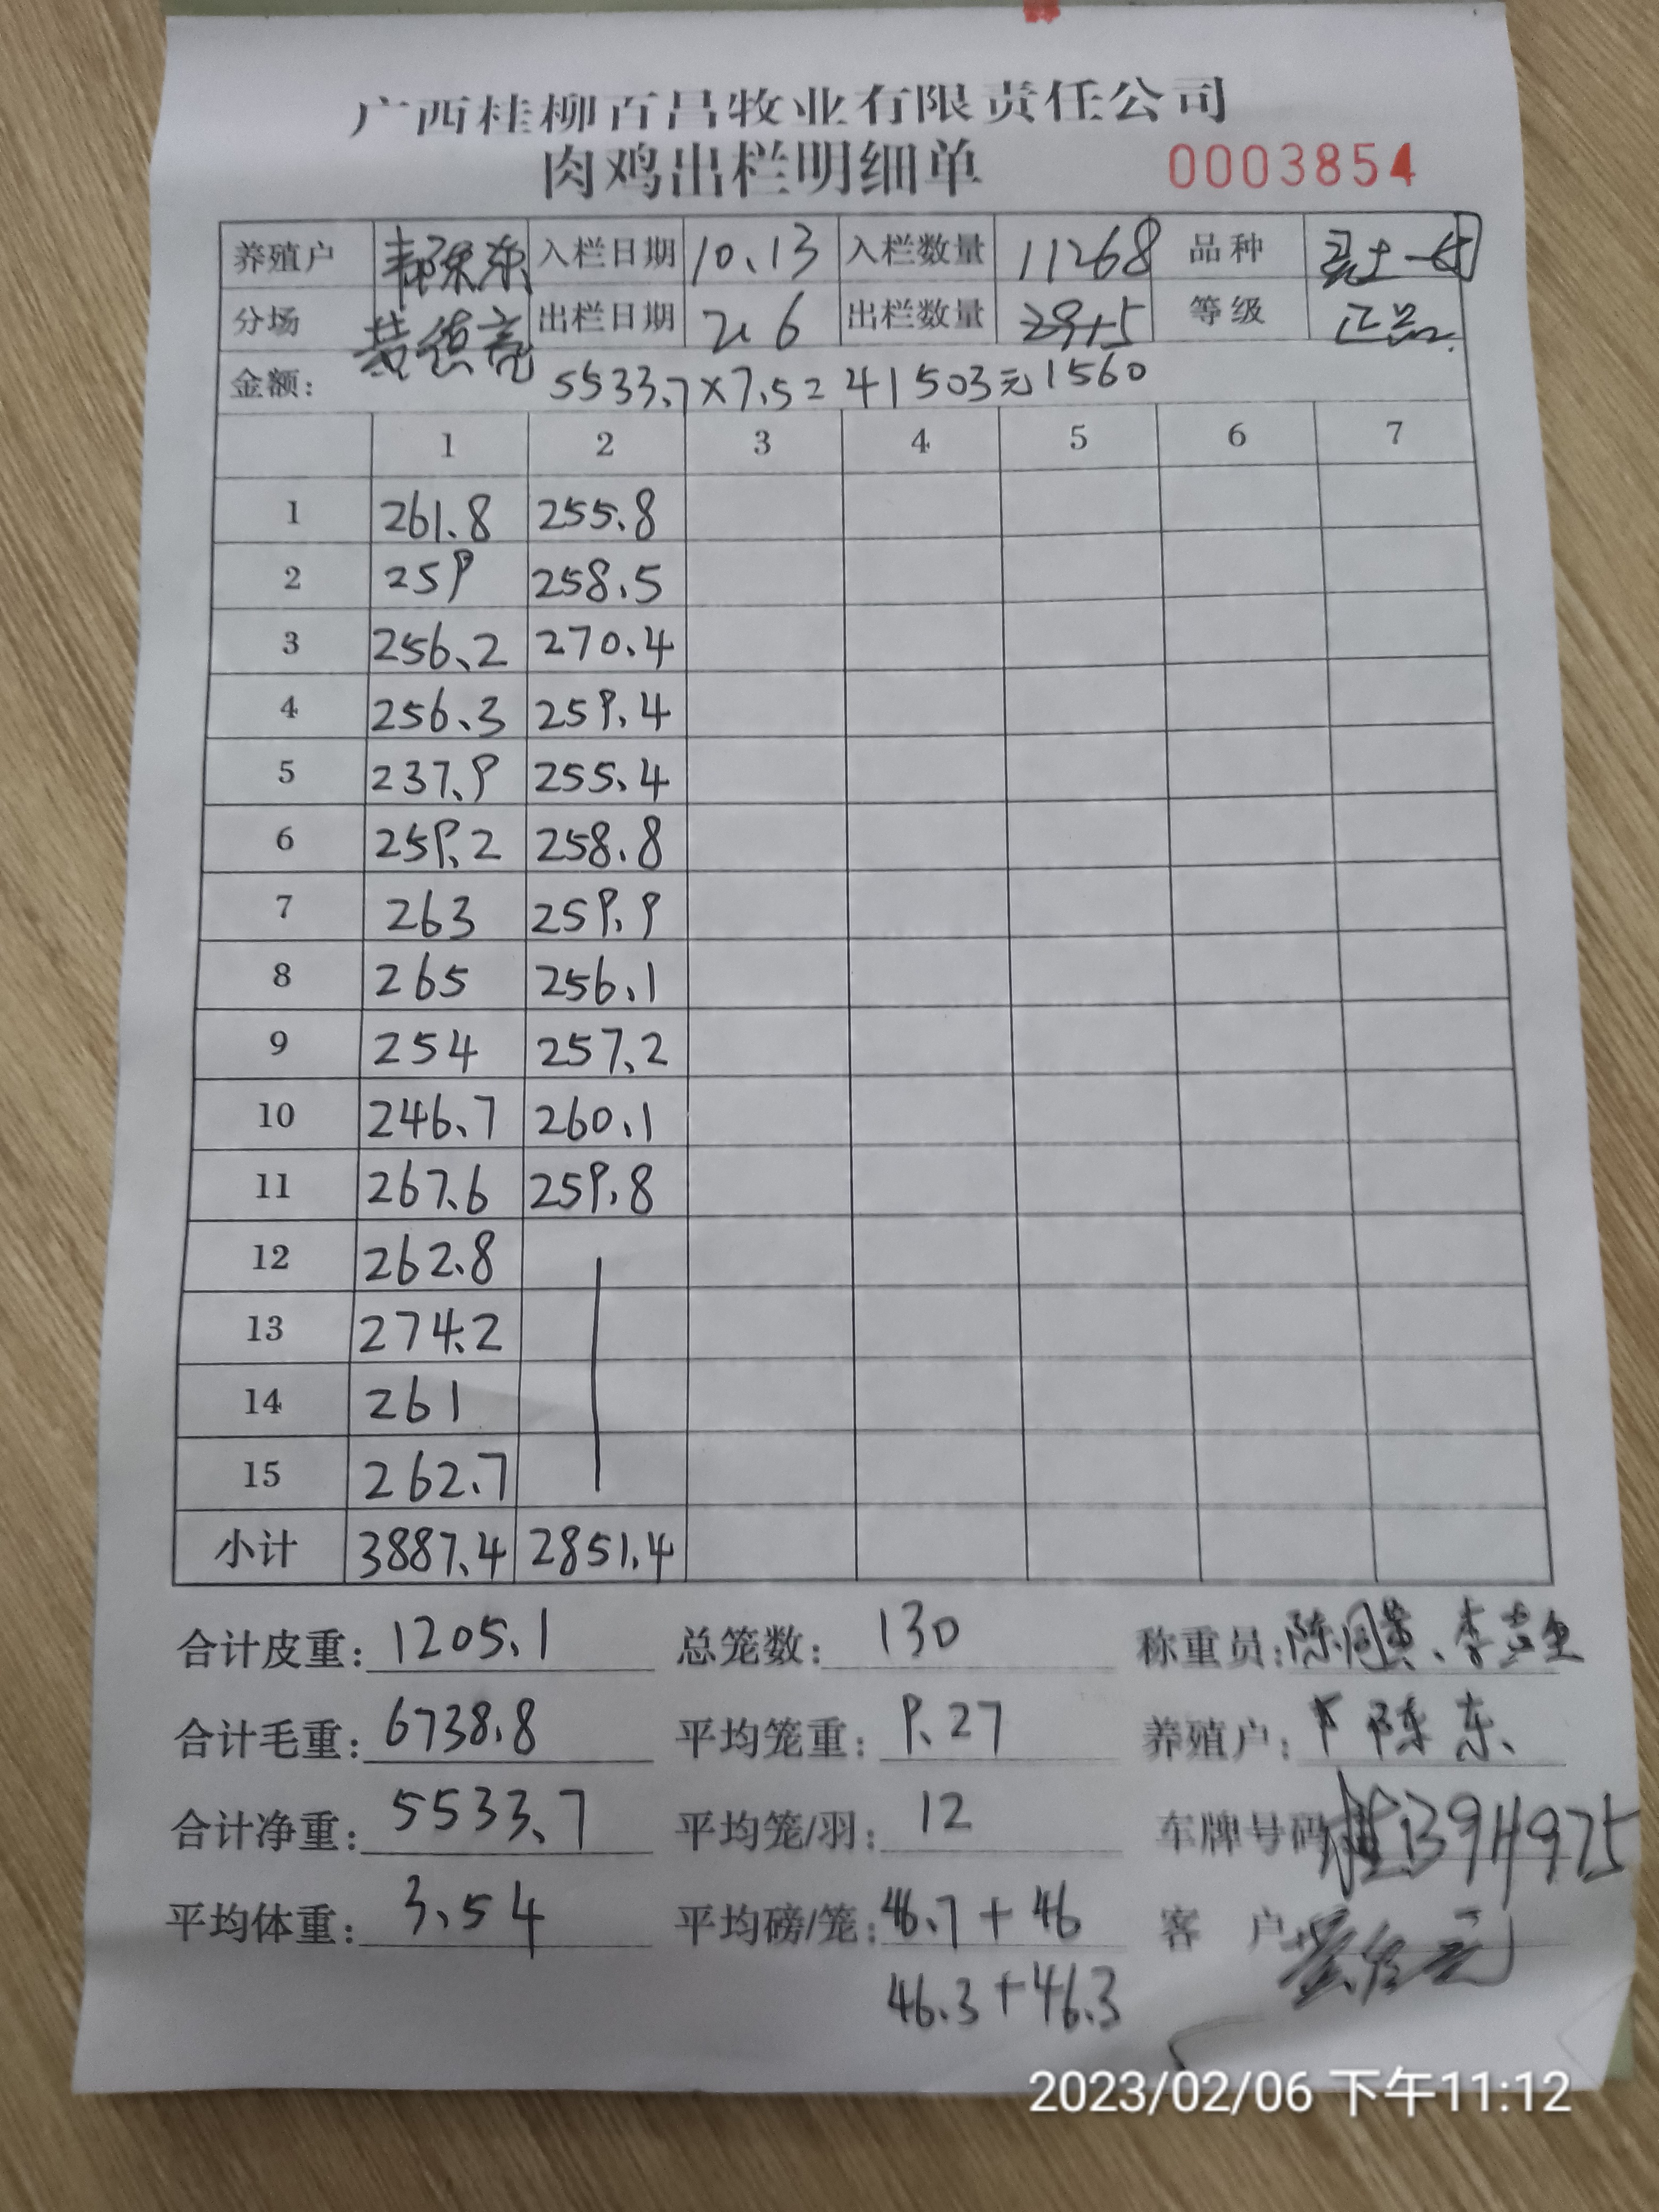 广西桂柳百昌牧业有限责任公司
肉鸡出栏明细单 0003854
养殖户 入栏日期 10.13 入栏数量 11268 品种
分场 出栏日期 2.6 出栏数量 等级 正品
金额: 5533.7×7.5= 41503元 1560
1 2 3 4 5 6 7
1 261.8 255.8
2 259 258.5
3 256.2 270.4
4 256.3 259.4
5 237.9 255.4
6 259.2 258.8
7 263 259.9
8 265 256.1
9 254 257.2
10 246.7 260.1
11 267.6 259.8
12 262.8
13 274.2
14 261
15 262.7
小计 3887.4 2851.4
合计皮重: 1205.1 总笼数: 130 称重员:
合计毛重: 6738.8 平均笼重: 9.27 养殖户:
合计净重: 5533.7 平均笼/羽: 12 车牌号码
平均体重: 3.54 平均磅/笼: 46.7+46 客 户
46.3+46.3
2023/02/06 下午11:12